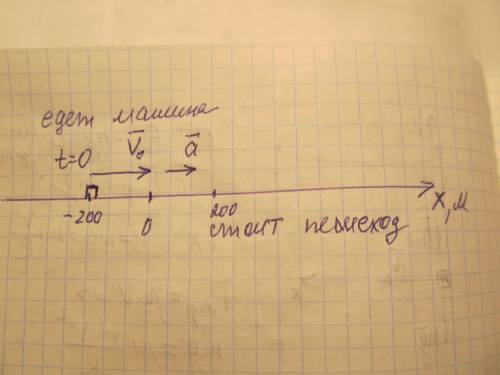 едет машина
t=0 V₀ a
-200 0 200 x, м
стоит пешеход